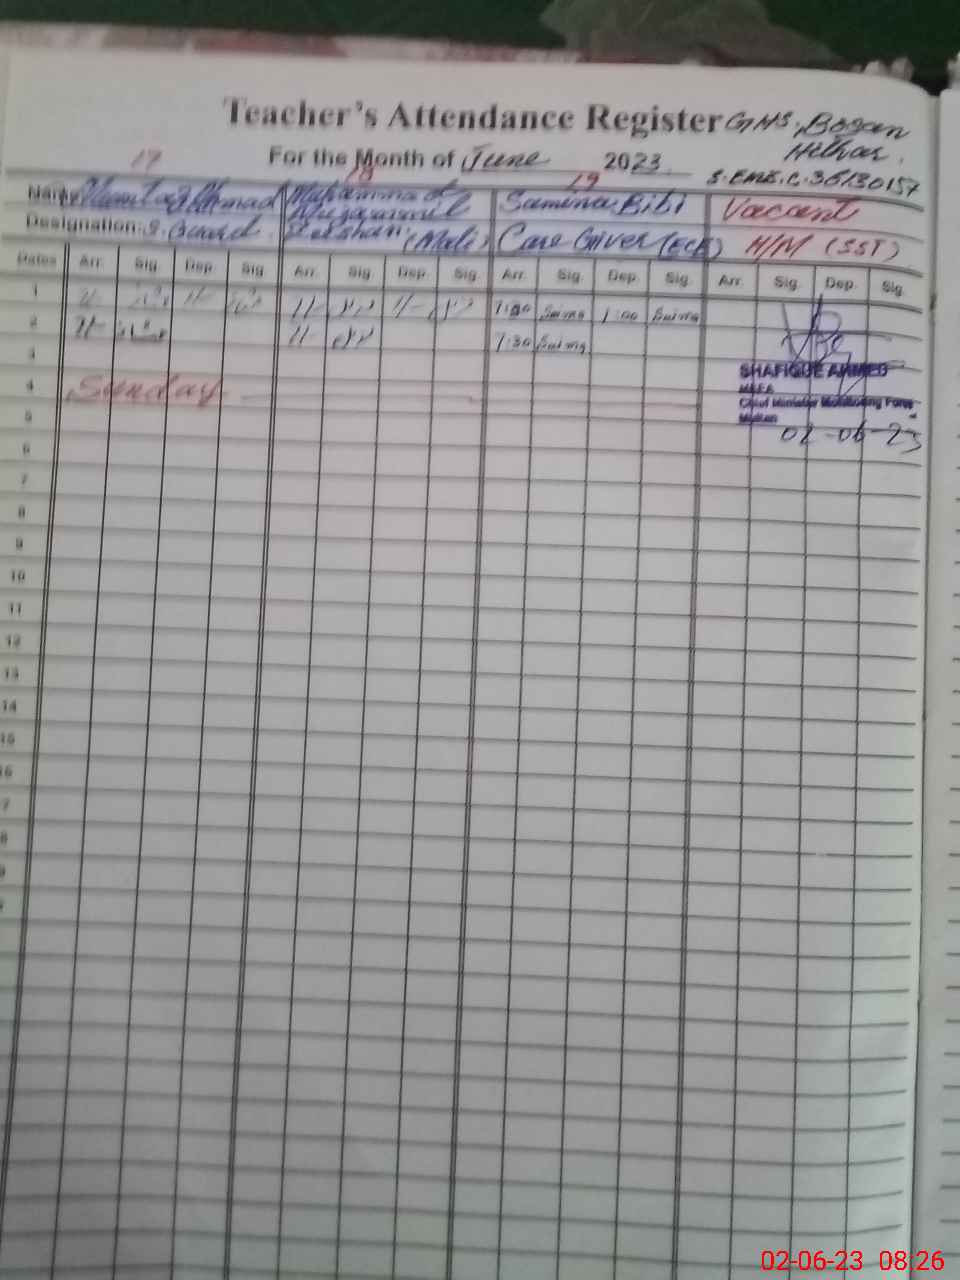 Teacher's Attendance Register GMS, Bosan
Hithar.
For the Month of June 2023
S.EMIS.C. 36130157
17 18 19
Name Mumtaz Ahmad Muhammad Muzammil Samina Bibi Vacant
Designation: S. Guard (Mali) Care Giver (ECE) H/M (SST)
Dates Arr. Sig. Dep. Sig. Arr. Sig Dep. Sig. Arr. Sig. Dep. Sig. Arr. Sig. Dep. Sig.
1 11- 11- 11- 11- 7:30 Saima 1:00 Saima
2 11- 11- 7:30 Saima
3
SHAFIQUE AHMED
4 Sunday
MAEA
Chief Minister Monitoring Force
5
Multan
02-06-23
6
7
8
9
10
11
12
13
14
15
16
7
8
9
02-06-23 08:26